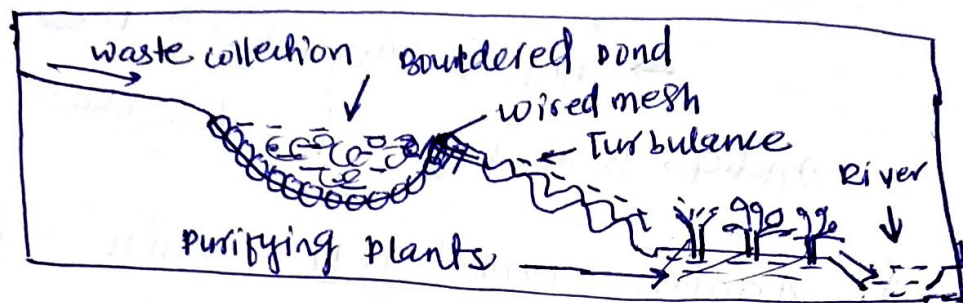 waste collection
Bouldered pond
wired mesh
Turbulance
River
Purifying plants